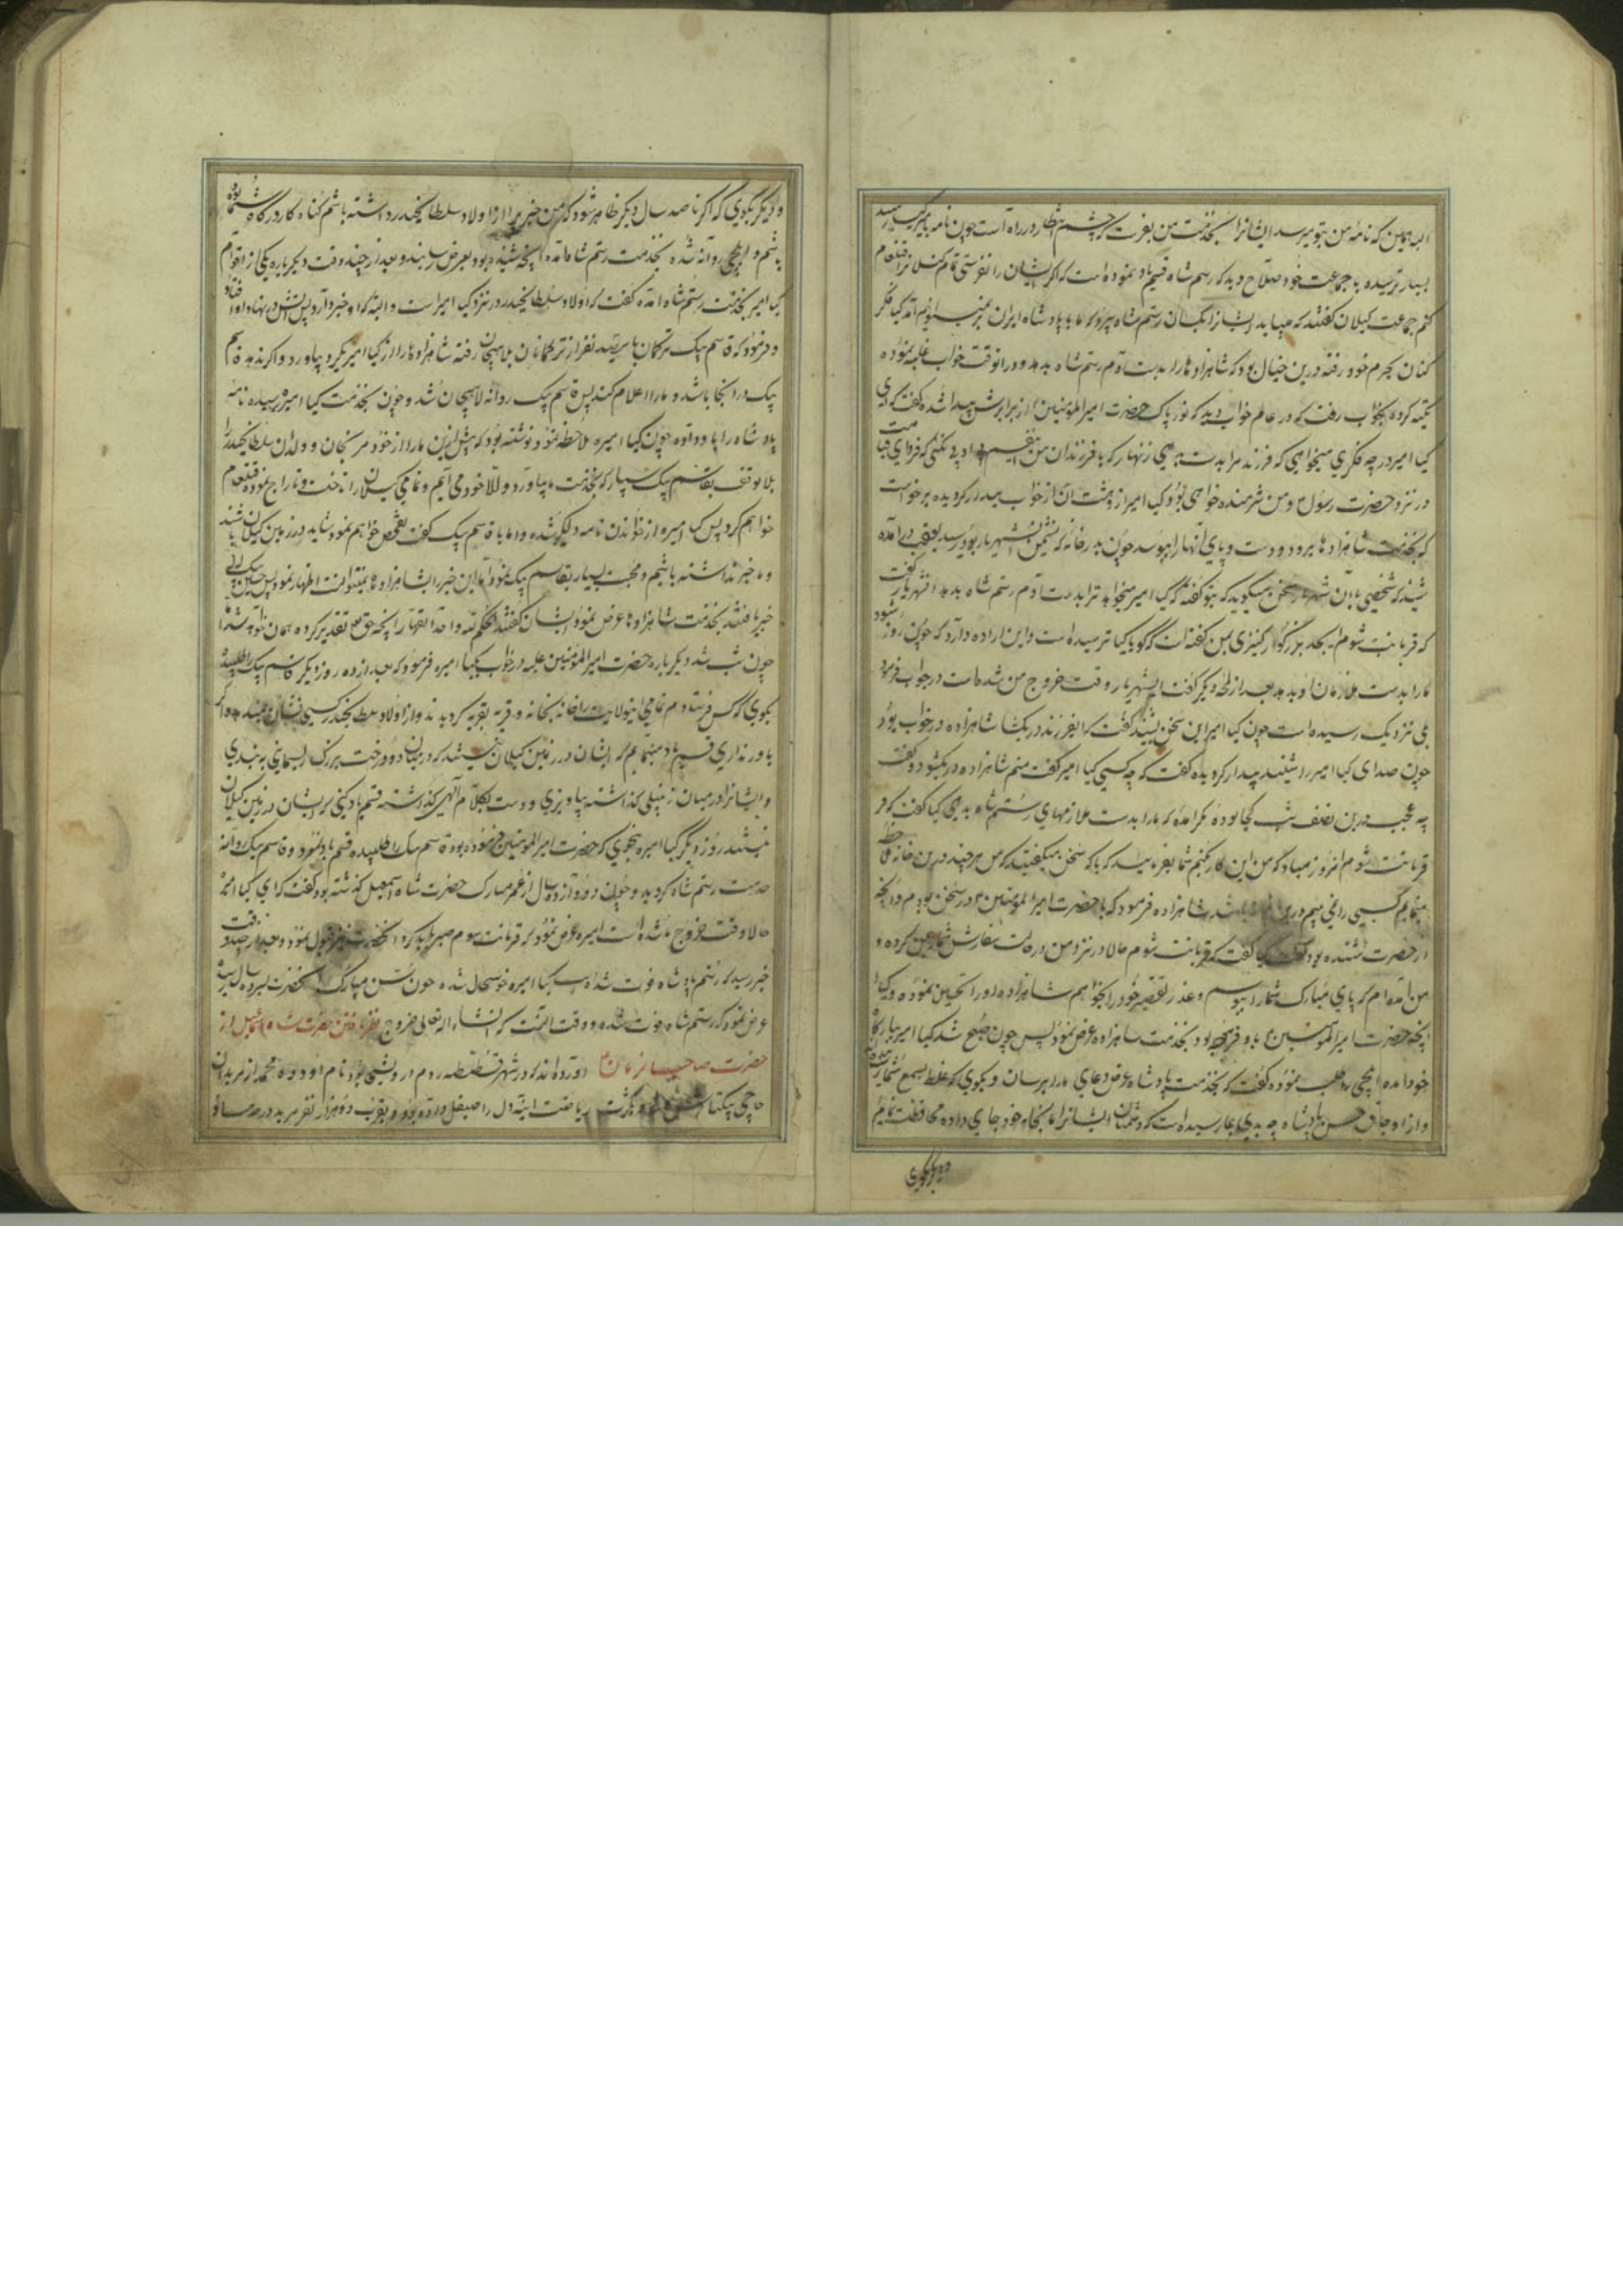 البته همین که نامهٔ من بتو برسد ایشانرا بخدمت من بفرست که چشم انتظار در راه است چون نامه بامیر کیا رسید
بسیار ترسیده به جماعت خود صلاح دید که رستم شاه قسم یاد نموده است که اگر ایشان را نفرستی تمام کیلانرا قتل عام
کنم جماعت کیلان گفتند که میباید ایشانرا بکسان رستم شاه سپرد که ما با پادشاه ایران بر نمی آئیم کیا فکر
کنان بحرم خود رفته درین خیال بود که شاهزادها را بدست آدم رستم شاه بدهد و در انوقت خواب غلبه نموده
تکیه کرده بخواب رفت که در عالم خواب دید که نور پاک حضرت امیرالمؤمنین از برابرش پیدا شده گفت که ای
کیا امیر در چه فکری میخواهی که فرزند مرا بدست بدهی زنهار که با فرزندان من بی ادبی نکنی که فردای قیامت
در نزد حضرت رسول و من شرمنده خواهی بود کیا امیر از دهشت آن از خواب بیدار گردیده برخواست
که بخدمت شاهزادها برود و دست و پای آنها را ببوسد چون بدر خانه که نشیمن شهریار بود رسید بعقب در آمده
شنید که شخصی با آن شهریار سخن میگوید که بتو گفته که کیا امیر میخواهد ترا بدست آدم رستم شاه بدهد انشهریار گفت
که قربانت شوم ای جد بزرگوار کنیزی بمن گفته است که گویا کیا ترسیده است و این اراده دارد که چون روز شود
مارا بدست ملازمان او بدهد بعد از لحظهٔ دیگر گفت ایشهریار وقت خروج من شده است در جواب فرمود
بلی نزدیک رسیده است چون کیا امیر این سخن بشنید گفت که ایفرزند در بکشا شاهزاده در خواب بود
چون صدای کیا امیر را شنید بیدار گردیده گفت که چه کسی کیا امیر گفت منم شاهزاده در بکشود و گفت
چه عجب درین نصف شب کجا بودهٔ مگر آمدهٔ که مارا بدست ملازمهای رستم شاه بدهی کیا گفت که
قربانت شوم امروز مبادا که من این کار کنم شما بفرمایید که با که سخن میگفتید که من هر چند درین خانه ملاحظه
مینمایم کسی را نمی بینم شاهزاده فرمود که با حضرت امیرالمؤمنین در سخن بودم و آنچه
از حضرت شنیده بود گفت کیا گفت که قربانت شوم حالا در نزد من در حالت سفارش شما کرده و
من آمده ام که پای مبارک شما را ببوسم و عذر تقصیر خود را بخواهم شاهزاده او را تحسین نموده و کیا
آنچه حضرت امیرالمؤمنین باو فرموده بود بخدمت شاهزاده عرض نمود پس چون صبح شد کیا امیر ببارگاه
خود آمده ایلچی را طلب نموده گفت که بخدمت پادشاه عرض دعای ما را برسان و بگوی که غلط بسمع شما رسیده
و از اوجاق حسن پادشاه چه بدی بما رسیده است که دشمنان ایشانرا ما بخانه خود جای داده محافظت نمائیم
و دیگر بگوی
و دیگر بگوی که اگر تا صد سال دیگر ظاهر شود که من خبر از اولاد سلطان حیدر داشته باشم گناه کار درگاه شما بوده
باشم و ایلچی روانه شده بخدمت رستم شاه آمده آنچه شنیده بود بعرض رسانید و بعد از چند وقت دیگر باره یکی از اقوام
کیا امیر بخدمت رستم شاه آمده گفت که اولاد سلطان حیدر در نزد کیا امیر است و البته که او خبر دارد پس آتش در نهاد او افتاد
و فرمود که قاسم بیک ترکمان با سیصد نفر از ترکمانان بلاهیجان رفته شاهزادها را از کیا امیر بگیرد و بیاورد و اگر ندهد قاسم
بیک در آنجا باشد و مارا اعلام کند پس قاسم بیک روانه لاهیجان شد و چون بخدمت کیا امیره رسیده نامهٔ
پادشاه را باو داده چون کیا امیره ملاحظه نمود نوشته بود که پیش ازین مارا از خود مرنجان و ولدان سلطان حیدر را
بلا توقف بقاسم بیک بسپار که بخدمت ما بیاورد و الا خود می آیم و تمامی کیلان را تاخت و تاراج نموده قتل عام
خواهم کرد پس کیا امیره از خواندن نامه دلگیر شده و اما با قاسم بیک گفت تفحص خواهم نمود شاید در زمین کیلان باشند
و ما خبر نداشته باشیم و محبت بسیار بقاسم بیک نمود اما این خبر را بشاهزادها نمیتوانست اظهار نمود پس حسین بیک لله
خبر یافته بخدمت شاهزادها عرض نمود ایشان گفتند الحکم لله واحد القهار آنچه حق تقدیر کرده همان خواهد شد اما
چون شب شد دیگر باره حضرت امیرالمؤمنین علیه در خواب بکیا امیره فرمود که بعد از ده روز دیگر قاسم بیک را طلبیده
بگوی که کس فرستادم تمامی اینولایت را خانه بخانه و قریه بقریه گردیدند و از اولاد سلطان حیدر کسی نشان نمیدهد و اگر
باور نداری قسم یاد مینمایم که ایشان در زمین کیلان نیستند که در میان دو درخت بزرگ ریسمانی به بندی
و ایشانرا در میان زنبیلی گذاشته بیاویزی و دست بکلام الهی گذاشته قسم یاد کنی که ایشان در زمین کیلان
نیستند روز دیگر کیا امیره بنحوی که حضرت امیرالمؤمنین فرموده بود قاسم بیک را طلبیده قسم یاد نمود و قاسم بیک روانه
خدمت رستم شاه گردید و چون دوازده سال از عمر مبارک حضرت شاه اسمعیل گذشته بود گفت که ای کیا امیره
حالا وقت خروج ما شده است امیره عرض نمود که قربانت شوم صبر باید کرد آنحضرت نیز قبول نمود و بعد از چند وقت
خبر رسید که رستم پادشاه فوت شده است کیا امیره خوشحال شده چون سن مبارک آنحضرت بسیزده سال رسید
عرض نمود که رستم شاه فوت شده و وقت آنست که انشاء الله تعالی خروج نظر یافتن حضرت شاه اسمعیل از
حضرت صاحب الزمان آورده اند که در شهر قسطنطنیه روم درویشی بود نام او دده محمد از مریدان
حاجی بیکتاش ریاضت آینه دل را صیقل داده بود و بقرب دو هزار نفر مرید در